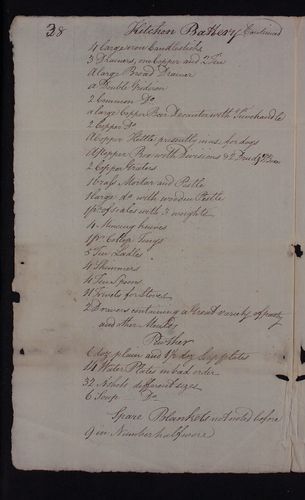 38 Kitchen Battery Continued
4 large iron Candlesticks
3 Drainers, one Copper and 2 Tin
A large Bread Drainer
a Double Gridiron
2 Common Do
a large Copper with Two handles
2 Copper Do
A Copper Kettle presently in use for dogs
A pepper Box with Divisions &
2 Copper Graters
1 brass Mortar and Pestle
1 large do with wooden Pestle
1 pr of scales with 3 weights
4 Mincing knives
1 pr Collop Tongs
5 Tin Ladles
4 Skimmers
4 Tin Spoons
for Stoves
2 Drawers containing a Great variety of pastry
and other
Pewther
6 doz plain and 1½ doz Soup plates
14 Water Plates in bad order
32 Ashets different sizes
6 Soup Do
Spare Blankets not noted before
9 in Number half wore